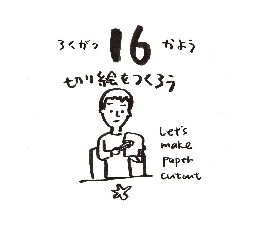 ろくがつ 16 かよう
切り絵をつくろう
Let's
make
paper
cutout